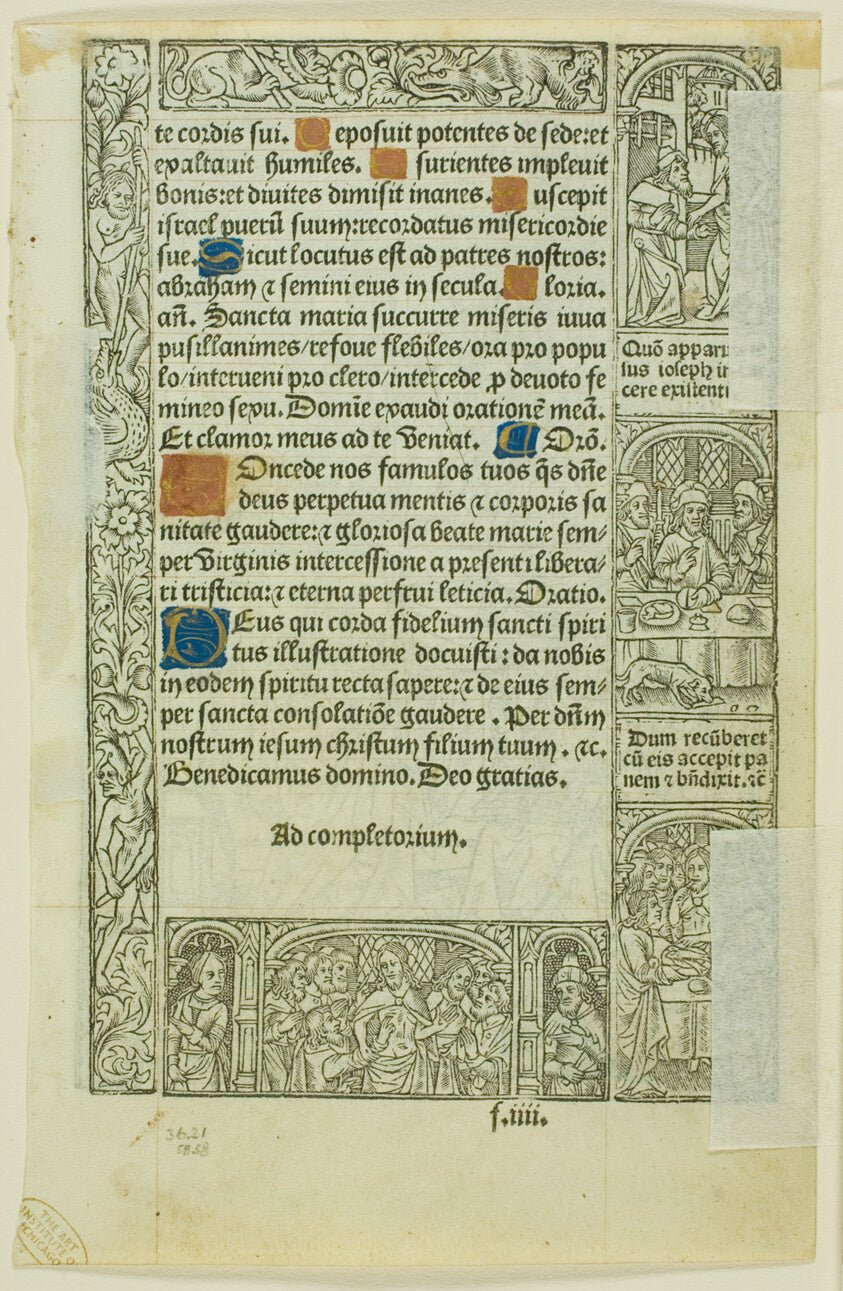 te cordis sui. D eposuit potentes de sede:et
exaltauit humiles. E surientes impleuit
bonis:et diuites dimisit inanes. S uscepit
israel puerū suum:recordatus misericordie
sue. Sicut locutus est ad patres nostros:
abraham ⁊ semini eius in secula. G loria.
an̄. Sancta maria succurre miseris iuua
pusillanimes/refoue flebiles/ora pro popu
lo/interueni pro clero/intercede ꝓ deuoto fe
mineo sexu. Domīe exaudi orationē meā.
Et clamor meus ad te veniat. Orō.
Concede nos famulos tuos q̄s dn̄e
deus perpetua mentis ⁊ corporis sa
nitate gaudere:⁊ gloriosa beate marie sem/
per virginis intercessione a presenti libera/
ri tristicia:⁊ eterna perfrui leticia. Oratio.
DEus qui corda fidelium sancti spiri
tus illustratione docuisti : da nobis
in eodem spiritu recta sapere:⁊ de eius sem/
per sancta consolatiōe gaudere . Per dn̄m
nostrum iesum christum filium tuum . ⁊c.
Benedicamus domino. Deo gratias.
Ad completorium.
f.iiii.
Quō appari
sus ioseph in
cere existenti
Dum recūberet
cū eis accepit pa
nem ⁊ bn̄dixit.⁊c̄
36.21
58.58
THE ART
INSTITUTE OF
CHICAGO